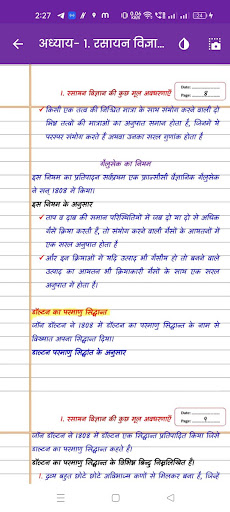 2:27
24
अध्याय- 1. रसायन विज्ञा...
1. रसायन विज्ञान की कुछ मूल अवधारणाएँ
Date:
Page: 8
✓ किसी एक तत्व की निश्चित मात्रा के साथ संयोग करने वाली दो
भिन्न तत्वों की मात्राओं का अनुपात समान होता है, जिनमे ये
परस्पर संयोग करते हैं अथवा उनका सरल गुणांक होता है
गैलुसेक का नियम
इस नियम का प्रतिपादन सर्वप्रथम एक फ्रान्सीसी वैज्ञानिक गैलुसेक
ने सन् 1808 में किया।
इस नियम के अनुसार
✓ ताप व दाब की समान परिस्थितियों में जब दो या दो से अधिक
गैसे क्रिया करती हैं, तो संयोग करने वाली गैसों के आयतनों में
एक सरल अनुपात होता है
✓ और इन क्रियाओं में यदि उत्पाद भी गैसीय हो तो बनने वाले
उत्पाद का आयतन भी क्रियाकारी गैसों के साथ एक सरल
अनुपात में होता है।
डॉल्टन का परमाणु सिद्धान्त
जॉन डॉल्टन ने 1808 में डॉल्टन का परमाणु सिद्धान्त के नाम से
विख्यात अपना सिद्धान्त दिया।
डाल्टन परमाणु सिद्धांत के अनुसार
1. रसायन विज्ञान की कुछ मूल अवधारणाएँ
Date:
Page: 9
जॉन डॉल्टन ने 1808 में डॉल्टन एक सिद्धान्त प्रतिपादित किया जिसे
डाल्टन का परमाणु सिद्धान्त कहते है।
डॉल्टन का परमाणु सिद्धान्त के विभिन्न बिन्दु निम्नलिखित हैं।
1. द्रव्य बहुत छोटे छोटे अविभाज्य कणों से मिलकर बना है, जिन्हें